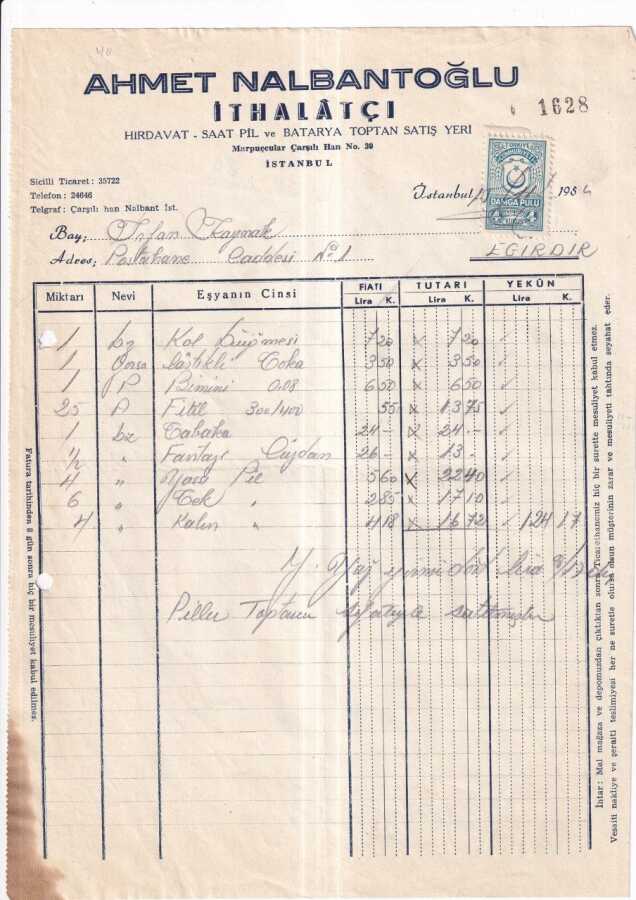 AHMET NALBANTOĞLU
İTHALÂTÇI
1628
HIRDAVAT - SAAT PİL ve BATARYA TOPTAN SATIŞ YERİ
Marpuçcular Çarşılı Han No. 39
İSTANBUL
TÜRKİYE
CUMHURİYETİ
DAMGA PULU
4 4
Sicilli Ticaret : 35722
Telefon : 24646
Telgraf : Çarşılı han Nalbant İst.
İstanbul 195
Bay; İrfan Kaynak
Adres; Postahane Caddesi No 1
EĞİRDİR
Miktarı Nevi Eşyanın Cinsi FİATI TUTARI YEKÛN
Lira K. Lira K. Lira K.
1 bz Kol Düğmesi 7 20 x 7 20
1 Lâstikli Toka 3 50 x 3 50
1 P Bimini 0.08 6 50 x 6 50
25 A Fitil 300/400 55 x 13 75
1 bz Tabaka 24 - x 24 -
1/2 " Fantazi Cüzdan 26 - x 13 -
4 " Yassı Pil 5 60 x 22 40
6 " Tek " 2 85 x 17 10
4 " Kalın " 4 18 x 16 72 124 17
Y. yirmi dört lira
Piller Toptancı sıfatıyla satılmıştır
Fatura tarihinden 8 gün sonra hiç bir mesuliyet kabul edilmez.
İhtar : Mal mağaza ve depomuzdan çıktıktan sonra Ticarethanemiz hiç bir surette mesuliyet kabul etmez.
Vesaiti nakliye ve şeraiti teslimiyesi her ne suretle olursa olsun müşterinin zarar ve mesuliyeti tahtında seyahat eder.